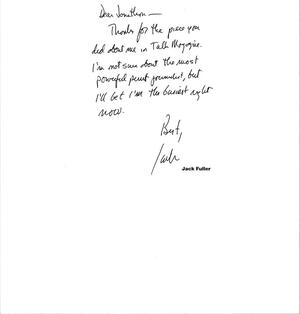 Dear Jonathan —
Thanks for the piece you
did about me in Talk Magazine.
I'm not sure about the most
powerful print journalist, but
I'll bet I'm the busiest right
now.
Best,
Jack
Jack Fuller